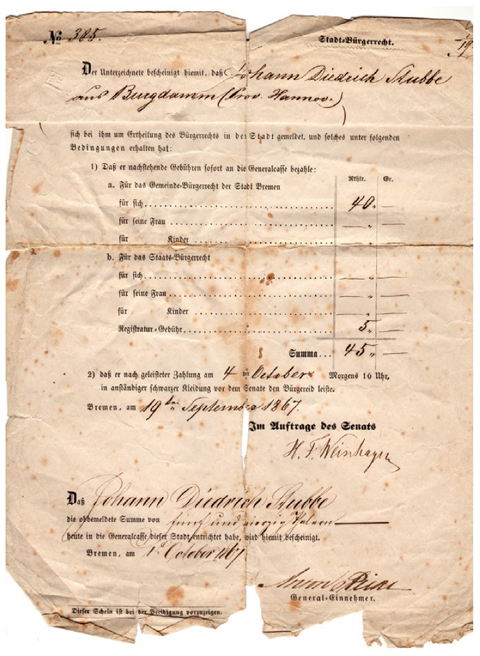 No 385.
Stadt-Bürgerrecht.
19
Der Unterzeichnete bescheinigt hiemit, daß Johann Diedrich Stubbe
aus Burgdamm (Prov. Hannov.)
sich bei ihm um Ertheilung des Bürgerrechts in der Stadt gemeldet, und solches unter folgenden
Bedingungen erhalten hat:
1) Daß er nachstehende Gebühren sofort an die Generalcasse bezahle:
Rthlr. Gr.
a. Für das Gemeinde-Bürgerrecht der Stadt Bremen
für sich 40. —
für seine Frau — " —
für Kinder — " —
b. Für das Staats-Bürgerrecht
für sich — " —
für seine Frau — " —
für Kinder — " —
Registratur-Gebühr 5 " —
Summa 45 " —
2) daß er nach geleisteter Zahlung am 4 ten October Morgens 10 Uhr,
in anständiger schwarzer Kleidung vor dem Senate den Bürgereid leiste.
Bremen, am 19ten September 1867.
Im Auftrage des Senats
H. F. Weinhagen
Daß Johann Diedrich Stubbe
die obbemeldete Summe von fünf und vierzig Thalern
heute in die Generalcasse dieser Stadt entrichtet habe, wird hiemit bescheinigt.
Bremen, am 1st October 1867
General-Einnehmer.
Dieser Schein ist bei der Beeidigung vorzuzeigen.